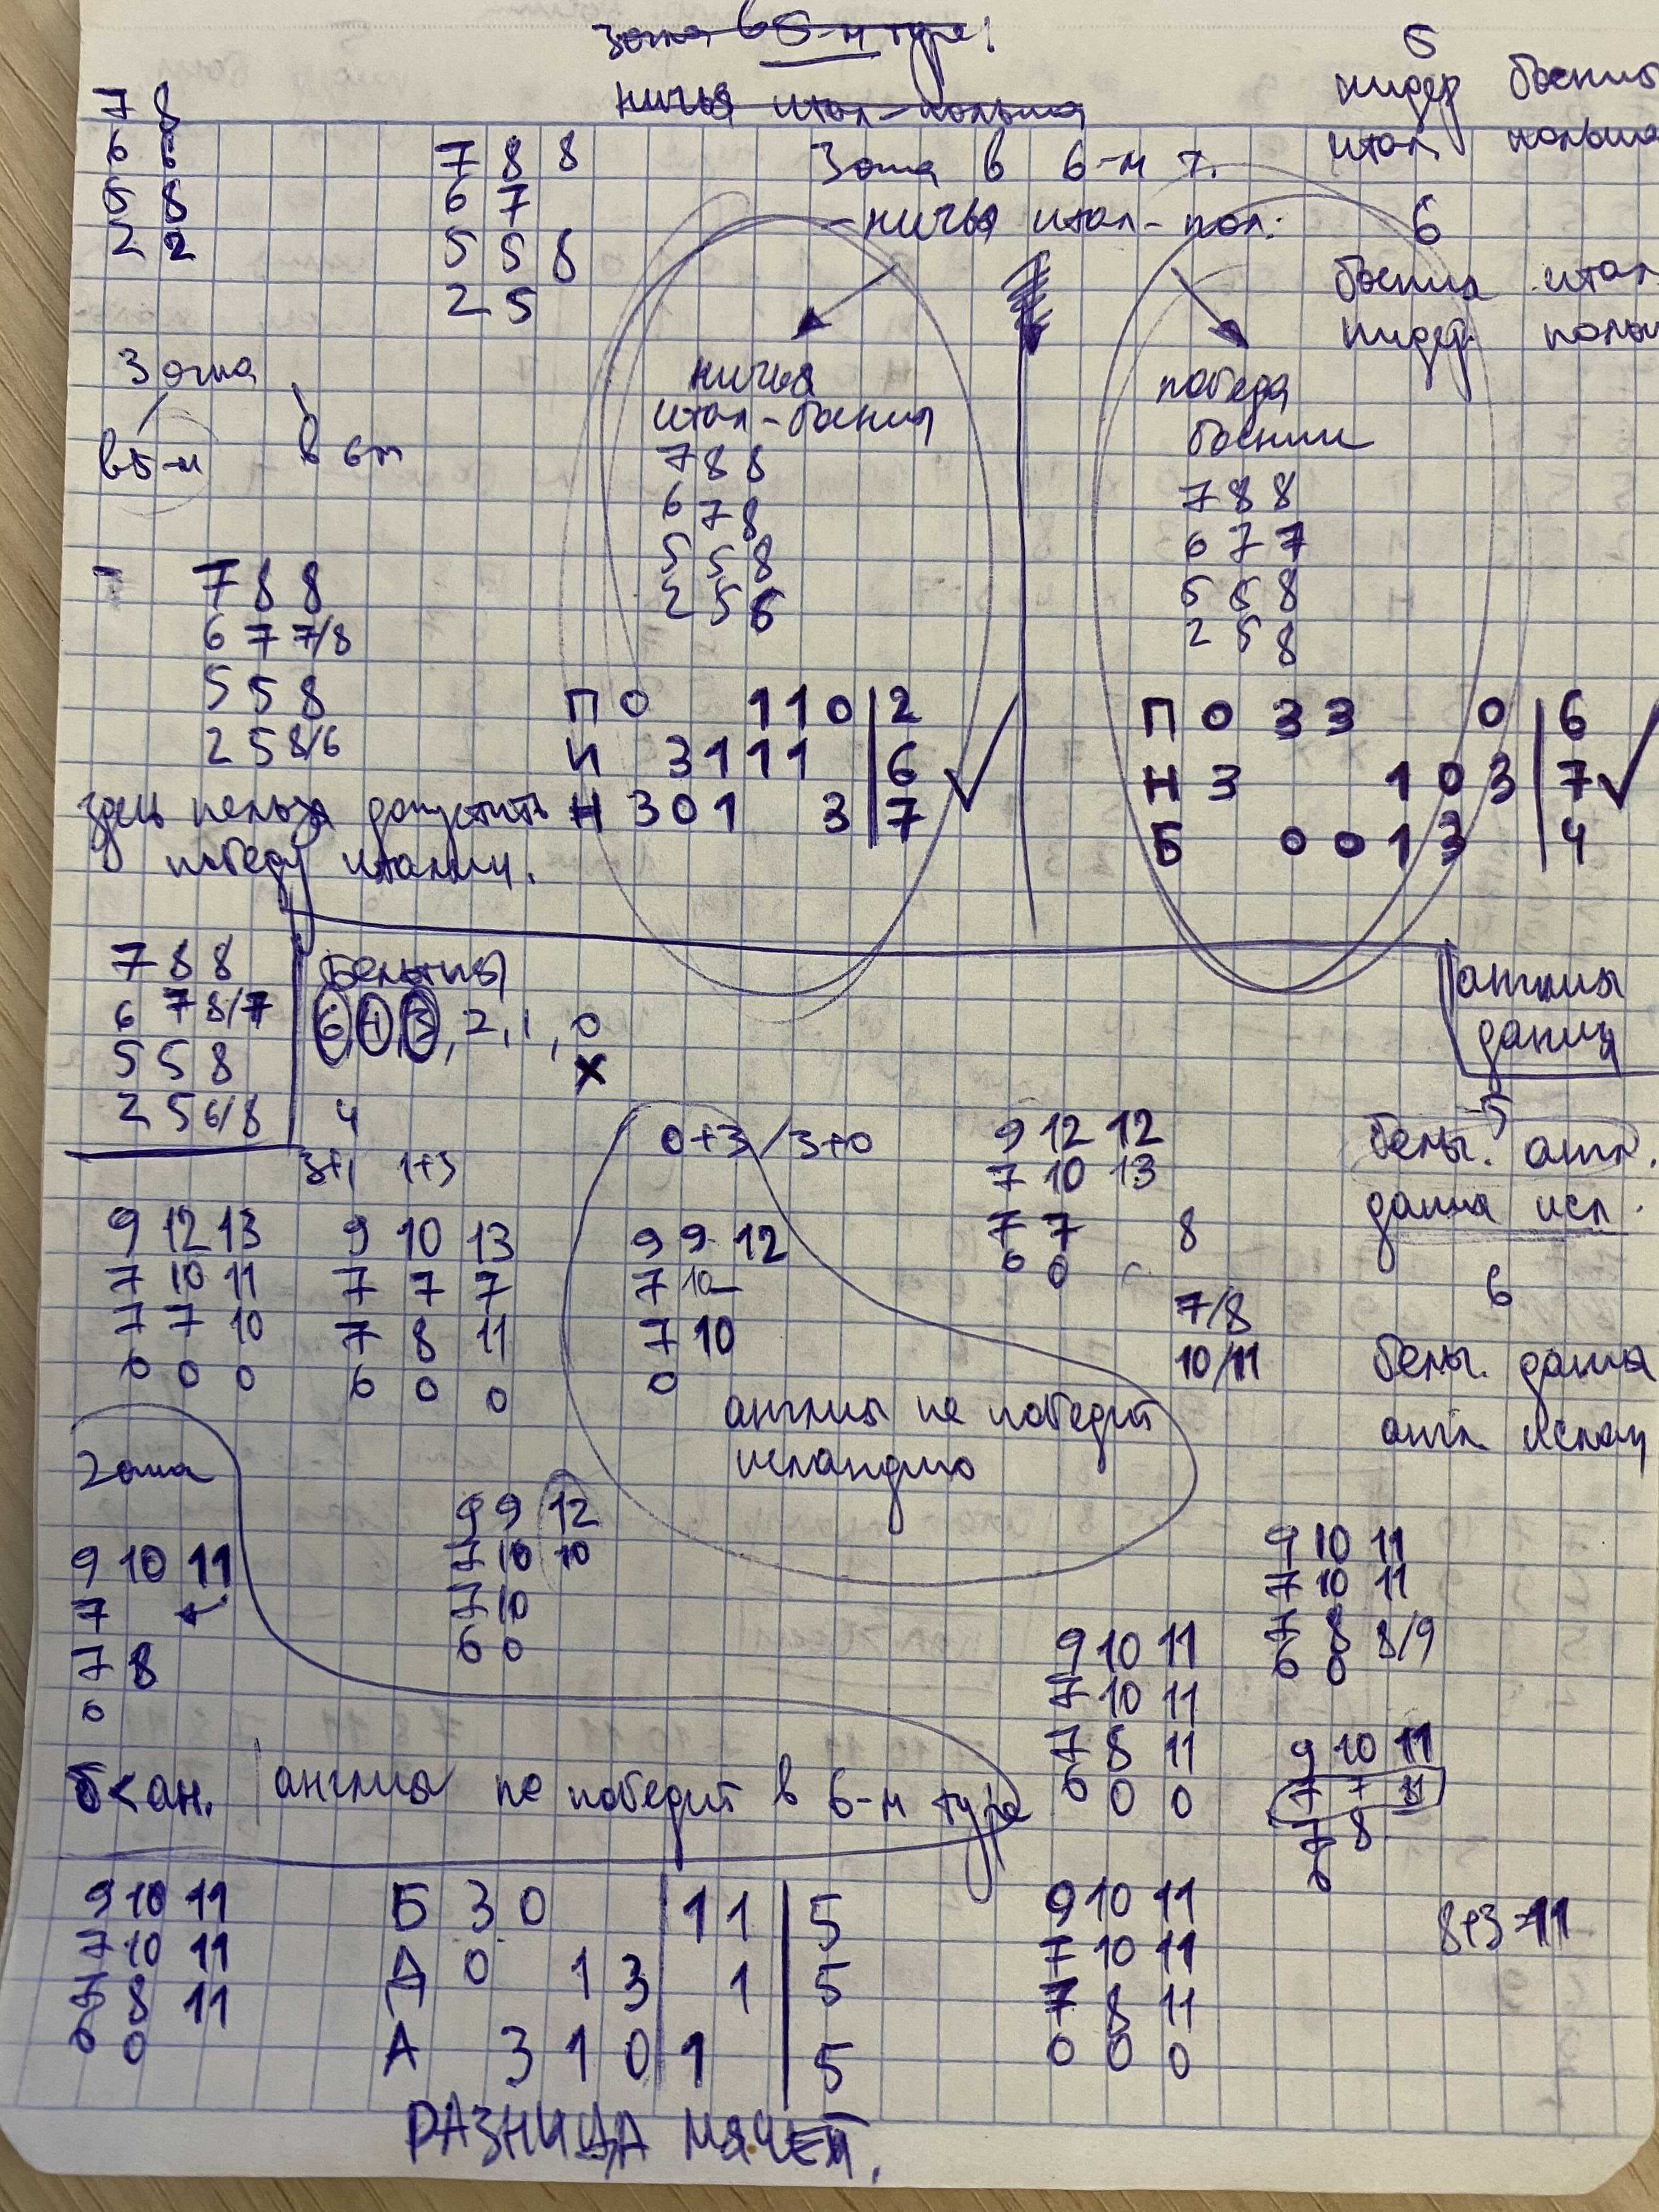 Зоша в 5-м туре:
ничья итал-польша
5
нидер босния
итал польша
7 8
6 6
5 8
2 2
7 8 8
6 7
5 5 8
2 5
Зоша в 6-м т.
-ничья итал-пол:
6
босния итал
нидер. поль
Зоша
в 5-м в 6м
ничья
итал-босния
7 8 8
6 7 8
5 5 8
2 5 6
победа
боснии
7 8 8
6 7 7
5 5 8
2 5 8
7 8 8
6 7 7/8
5 5 8
2 5 8/6
здесь нельзя допустить
победу италии.
П 0 1 1 0 | 2
И 3 1 1 1 | 6
Н 3 0 1 3 | 7
П 0 3 3 0 | 6
Н 3 1 0 3 | 7
Б 0 0 1 3 | 4
7 8 8
6 7 8/7
5 5 8
2 5 6/8
Бельгия
6, 4, 3, 2, 1, 0
х
4
3+1 1+3
англия
дания
0+3/3+0
9 12 12
7 10 13
7 7
6 0
8
7/8
10/11
5
бельг. англ.
дания исл.
6
бельг. дания
англ ислан
9 12 13
7 10 11
7 7 10
6 0 0
9 10 13
7 7 7
7 8 11
6 0 0
9 9 12
7 10
7 10
0
англия не победит
исландию
2оша
9 10 11
7
7 8
0
9 9 12
7 10 10
7 10
6 0
9 10 11
7 10 11
7 8 8/9
6 0
9 10 11
7 10 11
7 8 11
6 0 0
9 10 11
7 7 11
7 8
6
б<ан. англия не победит в 6-м туре
9 10 11
7 10 11
7 8 11
6 0
Б 3 0 1 1 | 5
Д 0 1 3 1 | 5
А 3 1 0 1 | 5
9 10 11
7 10 11
7 8 11
0 0 0
8+3=11
РАЗНИЦА МЯЧЕЙ.